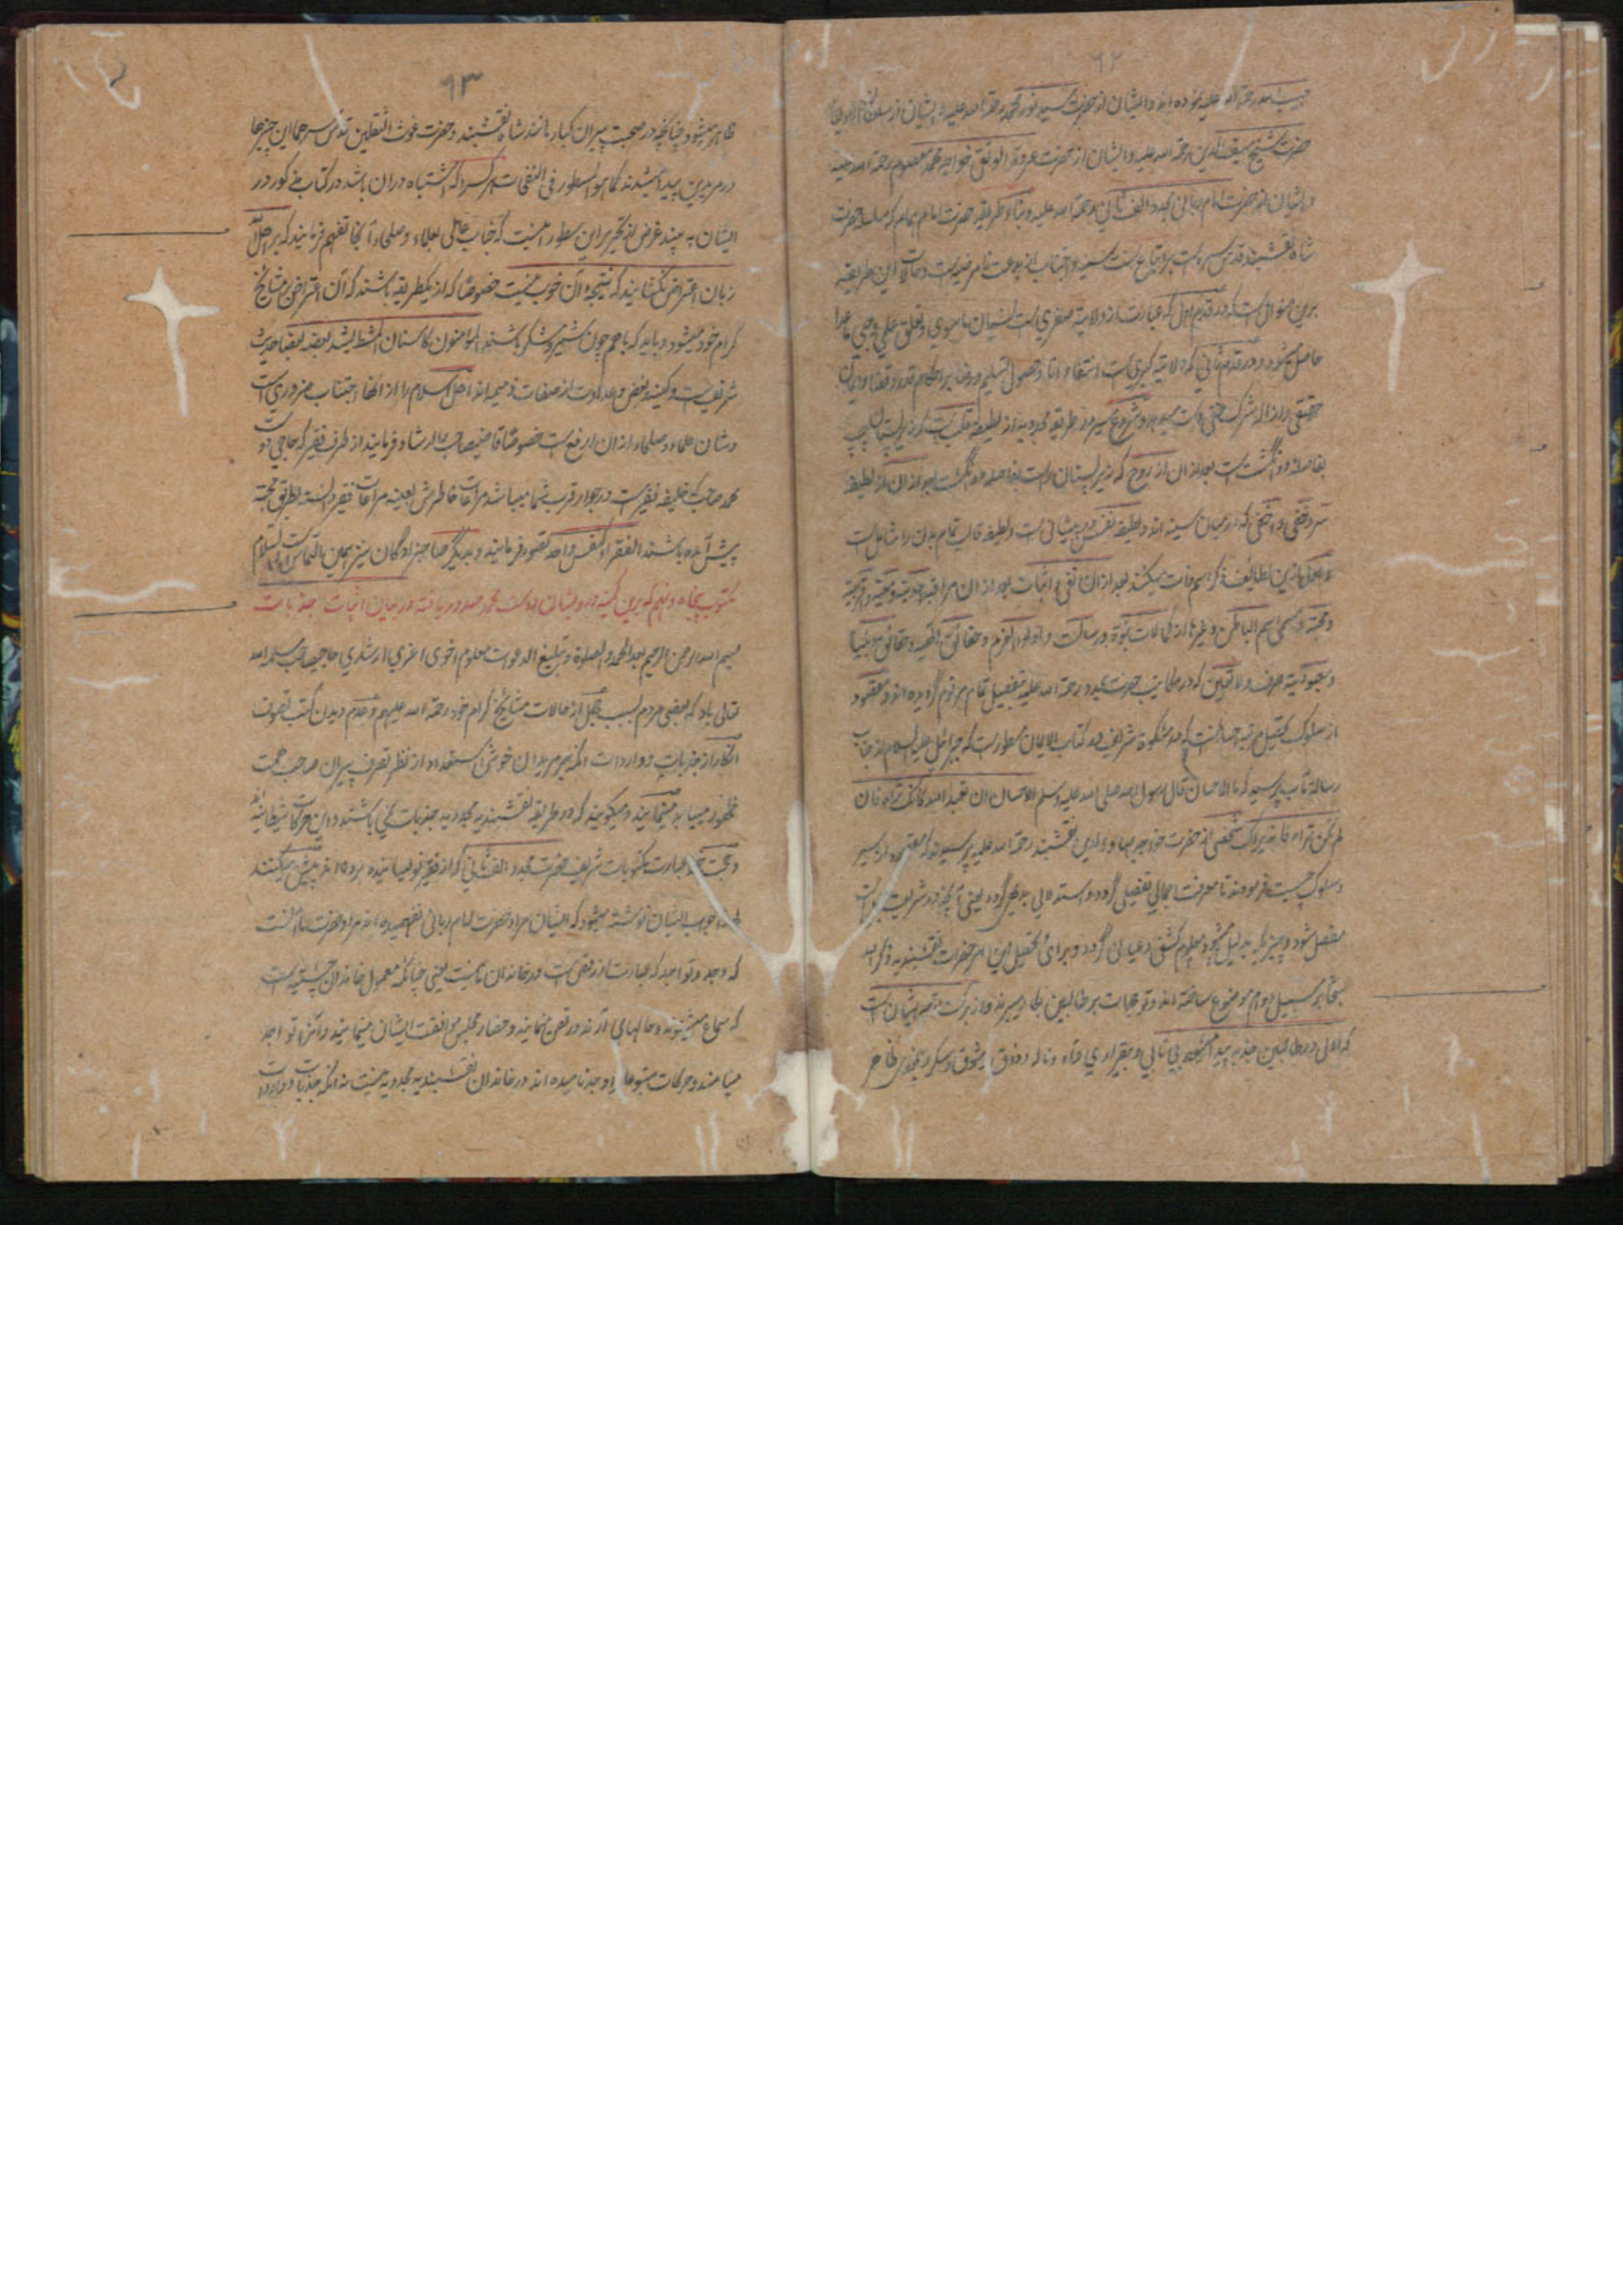 ۶۲
رحمة الله علیه بوده اند و ایشان از حضرت سید نور محمد رحمة الله علیه و ایشان از سلطان الاولیا
حضرت شیخ سیف الدین رحمة الله علیه و ایشان از حضرت عروة الوثقی خواجه محمد معصوم رحمة الله علیه
و ایشان از حضرت امام ربانی مجدد الف ثانی رحمة الله علیه و بناء طریقه حضرت امام همام که حضرت
شاه نقشبند قدس سره است بر اتباع سنت سنیه و اجتناب از بدعت نامرضیه است و حالات این طریقه
برین منوال است که در قدم اول که عبارت از ولایة صغری است نسیان ماسوی و تعلق علمی و حبی ما عدا
حاصل میشود و در قدم ثانی که ولایة کبری است انتفاء انا و حصول تسلیم و رضا بر احکام قدر و قضا و ایمان
حقیقی و ازاله شرک خفی است و شروع سیر در طریقه مجددیه از لطیفه قلب است که زیر پستان چپ
بفاصله دو انگشت است بعد از ان از روح که زیر پستان راست بفاصله دو انگشت بعد از ان از لطیفه
سر و خفی و اخفی که در میان سینه اند و لطیفه نفس در پیشانی است و لطیفه قالب تمام بدن را شامل است
ازین لطائف ذکر اسم ذات میکنند بعد از ان نفی و اثبات بعد از ان مراقبه احدیة و معیة و اقربیة
و محبة و مسمی اسم الباطن و غیرها از کمالات نبوة و رسالت و اولو العزم و حقائق الهیه و حقائق انبیا
و معبودیة صرف و لا تعین که در مکاتیب حضرت مجدد رحمة الله علیه بتفصیل تمام مرقوم گردیده اند و مقصود
از سلوک تحصیل مرتبه احسانست که در مشکوة شریف در کتاب الایمان مسطور است که جبرائیل علیه السلام از جناب
رسالة مآب پرسید که ما الاحسان قال رسول الله صلی الله علیه وسلم الاحسان ان تعبد الله کانک تراه فان
لم تکن تراه فانه یراک شخصی از حضرت خواجه بهاء الدین نقشبند رحمة الله علیه پرسید که مقصود از سیر
و سلوک چیست فرمودند تا معرفت اجمالی تفصیلی گردد و استدلالی بدیهی گردد یعنی آنچه در شریعت
مفصل شود و چیزیکه بدلیل معلوم کشفی و عیانی گردد و برای تحصیل این امر حضرات نقشبندیه ذکر الله
بر سبیل دوام موضوع ساخته اند و توجهات بر طالبین بکار میبرند و از برکت توجه ایشان است
که اولا در طالبین جذبه پیدا میشود بی تابی و بیقراری و آه و ناله و ذوق و شوق و سکر و بیخودی ظاهر
۶۳
ظاهر میشود چنانچه در صحبت پیران کبار مانند شاه نقشبند و حضرت غوث الثقلین قدس سرهما این چیزها
در مریدین پیدا میشدند کما هو المسطور فی النفحات هر کس را که اشتباه در ان باشد در کتاب مذکور در
ایشان به بیند غرض از تحریر این سطور اینست که جناب عالی بعلماء و صلحاء آنجا تفهیم فرمایند که بر اهل الله
زبان اعتراض نگشایند که نتیجه آن خوب نیست خصوصًا که از یکطریقه باشند که آن اعتراض بر مشائخ
کرام خود میشود و باید که باهم چون شیر و شکر باشند المؤمنون کاسنان المشط یشد بعضه بعضا حدیث
شریفست و کینه و بغض و عداوت از صفات ذمیمه اند اهل اسلام را از انها اجتناب ضروری است
و شان علماء و صلحاء از ان ارفع است خصوصًا قاضیصاحب را ارشاد فرمایند از طرف فقیر که حاجی دوست
محمد صاحب که خلیفه فقیر است در جوار قرب شما میباشد مراعات خاطرش بعینه مراعات فقیر دانسته بطریق محبة
پیش آمده باشند الفقراء کنفس واحدة تصور فرمایند و بدیگر صاحبزادگان نیز همین التماس است والسلام
مکتوب پنجاه و نهم که برین کمینه درویشان دوست محمد صدور یافته در بیان اثبات جذبات
بسم الله الرحمن الرحیم بعد الحمد و الصلوة و تبلیغ الدعوات معلوم اخوی اعزی ارشدی حاجیصاحب سلمه الله
تعالی باد که بعضی مردم بسبب جهل از حالات مشائخ کرام خود رحمة الله علیهم و عدم دیدن کتب تصوف
انکار از جذبات و واردات انکه بر مریدان خوش استعداد از نظر تصرف پیران صاحب همت
ظهور مییابد مینمایند و میگویند که در طریقه نقشبندیه مجددیه جذبات نمی باشند و این حرکات شیطانیه اند
و حجت عبارت مکتوبات شریف حضرت مجدد الف ثانی که از فقیر نویسانیده برده اند پیش میکنند
لهذا جواب ایشان نوشته میشود که ایشان مراد حضرت امام ربانی نفهمیده اند مراد حضرت ما انست
که وجد و تواجد که عبارت از رقص است در خاندان ما نیست یعنی چنانکه معمول خاندان چشتیه است
که سماع میشنوند و حالهای آرند و رقص مینمایند و حضار مجلس موافقت ایشان مینمایند و آنرا تواجد
مینامند و حرکات متبوعان را وجد نامیده اند در خاندان نقشبندیه مجددیه نیست نه انکه جذبات و واردات